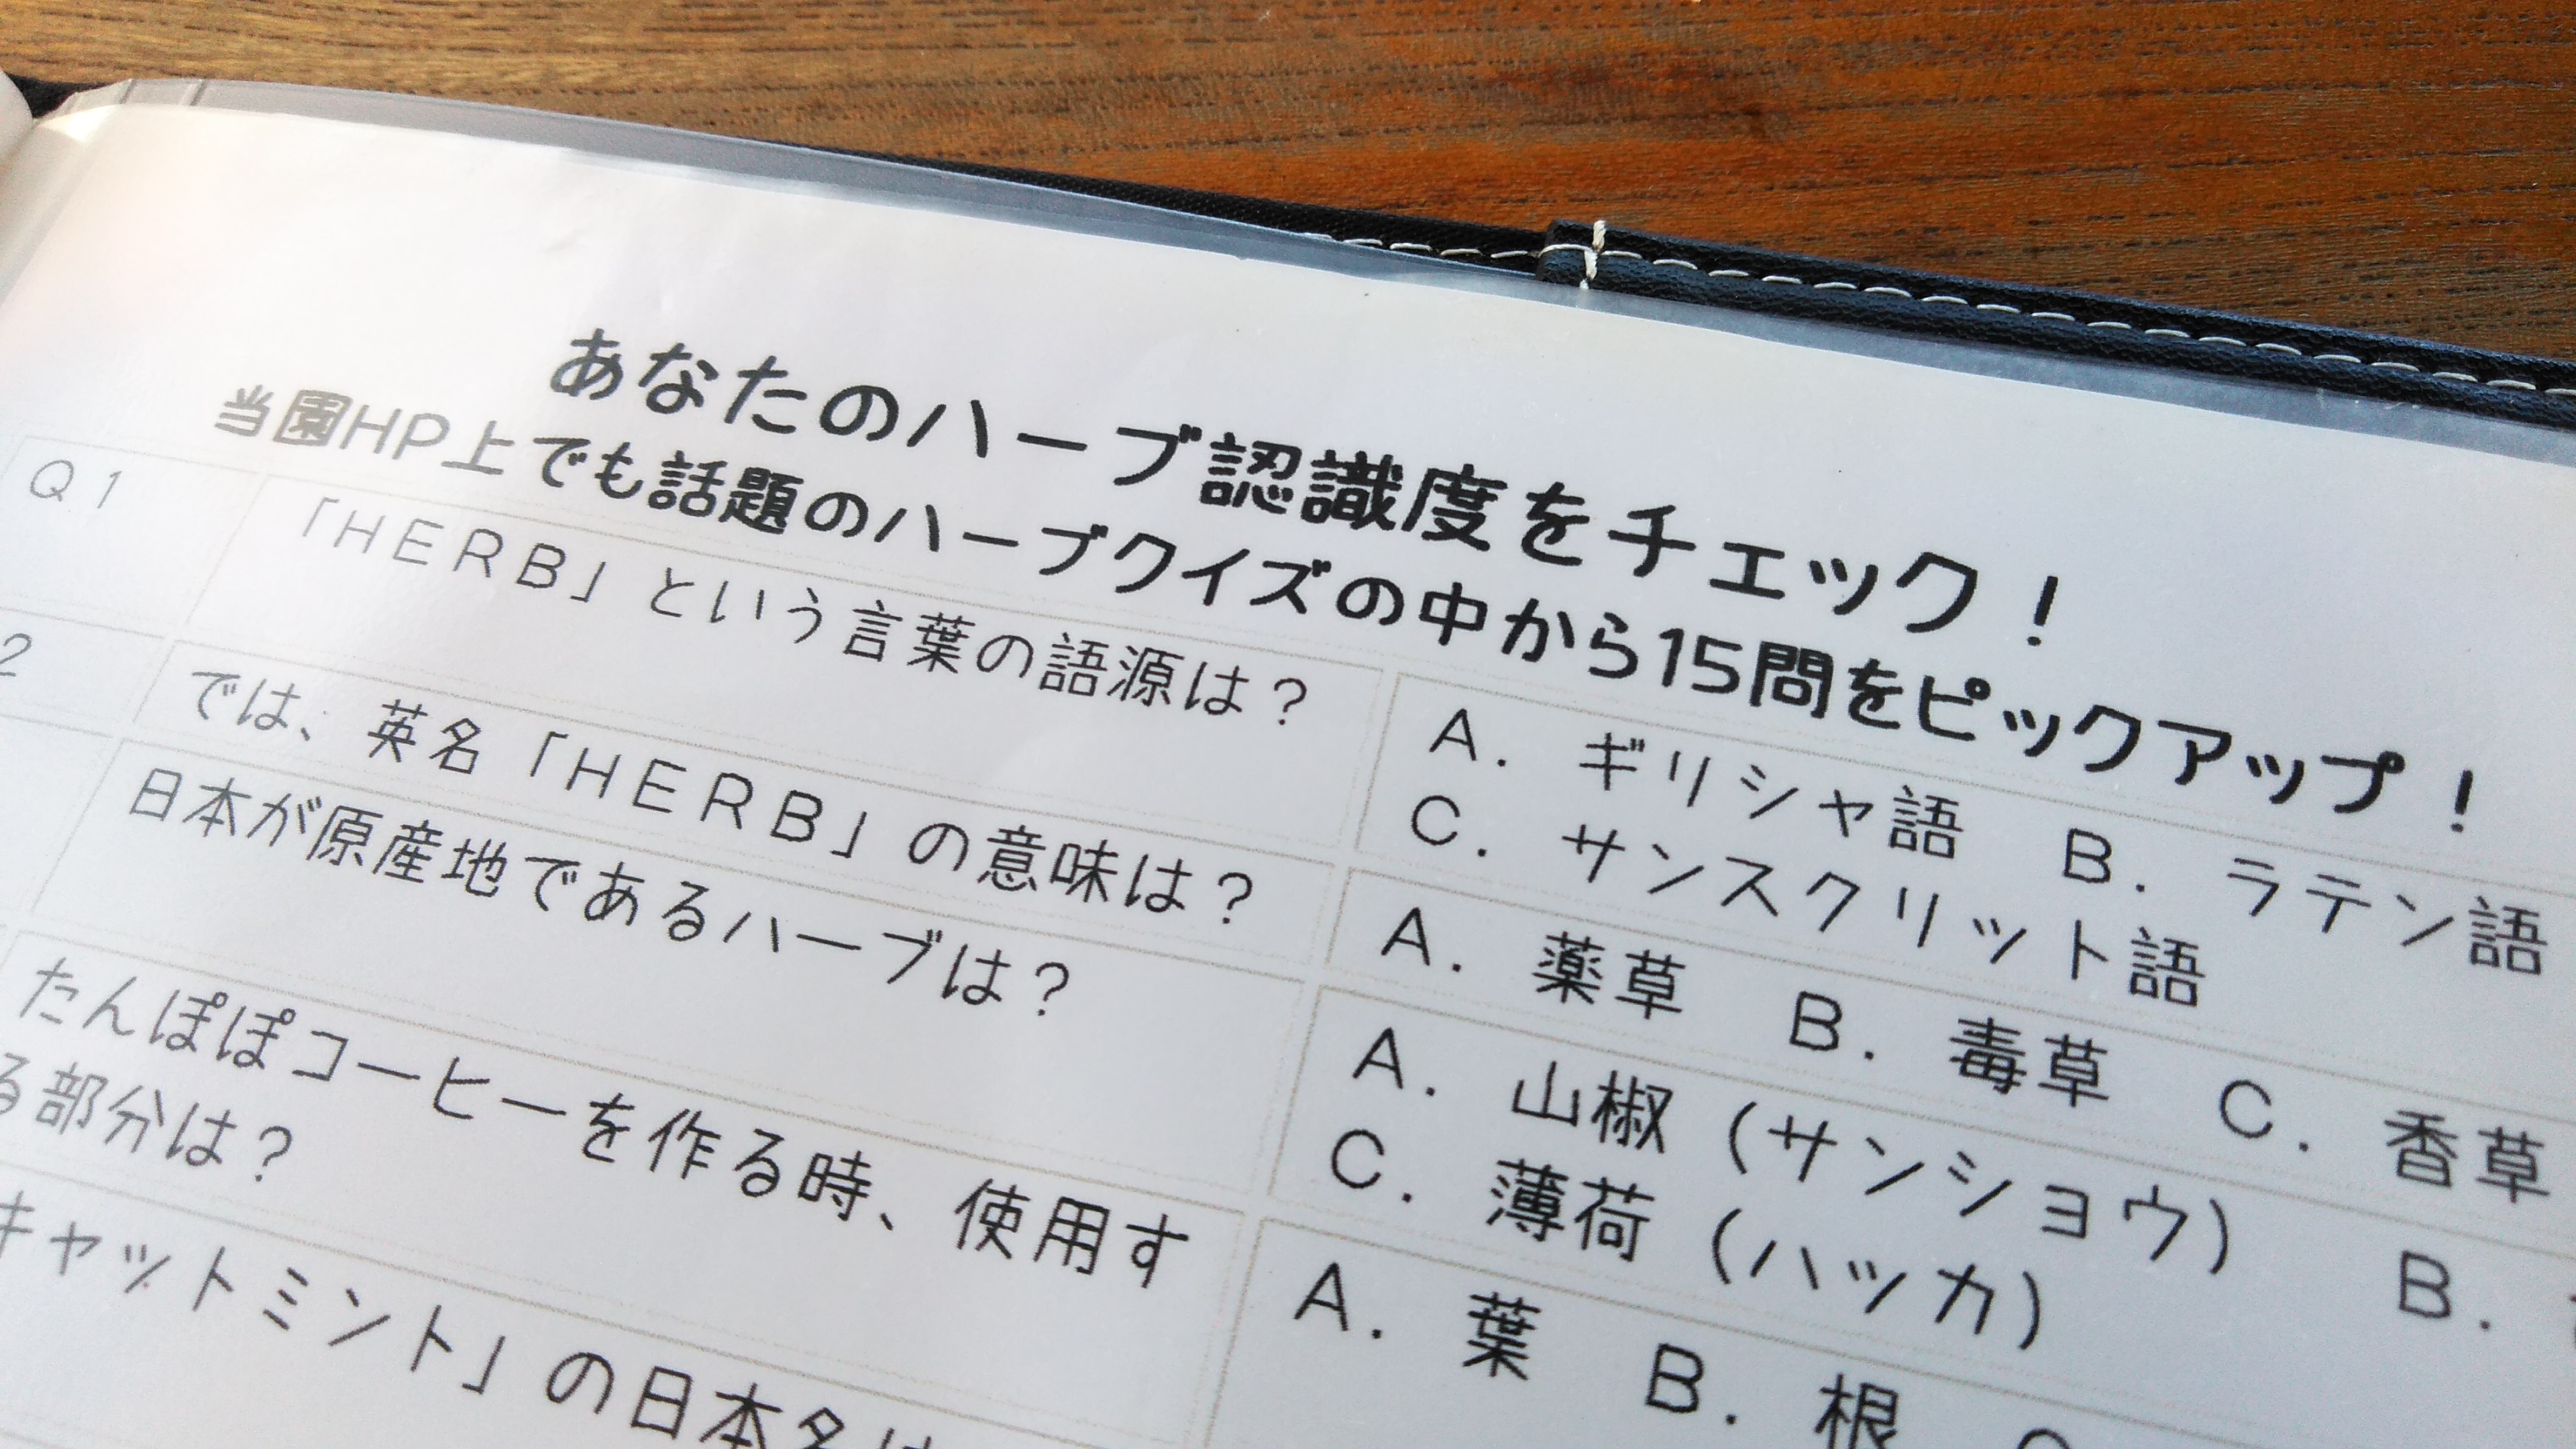 あなたのハーブ認識度をチェック！
当園HP上でも話題のハーブクイズの中から15問をピックアップ！
Q1 「HERB」という言葉の語源は？
A. ギリシャ語 B. ラテン語
C. サンスクリット語
2 では、英名「HERB」の意味は？
A. 薬草 B. 毒草 C. 香草
日本が原産地であるハーブは？
A. 山椒（サンショウ） B.
C. 薄荷（ハッカ）
たんぽぽコーヒーを作る時、使用す
る部分は？
A. 葉 B. 根
キャットミント」の日本名は